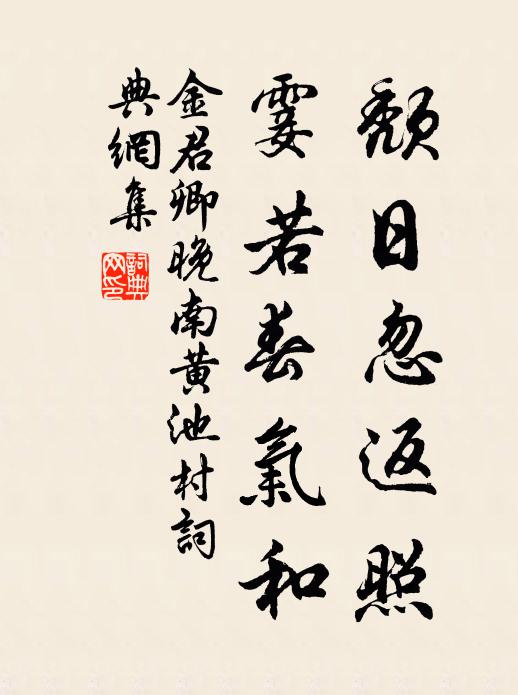 頹日忽返照
霎若春氣和
金君卿晚南黄池村詞
典網集
詞典网印